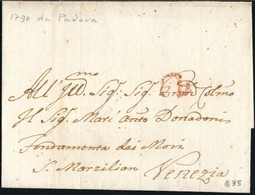 1790 da Padova
All' Ill.mo Sig: Sig: Colmo
Il Sig: Marc' Anto Donadonis
Fondamenta dei Mori
S. Marzilian Venezia